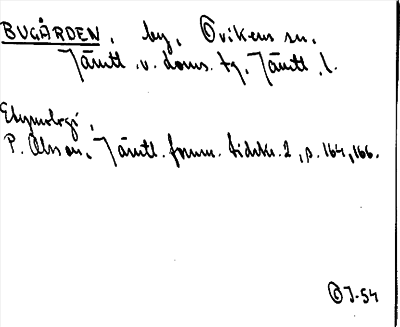 BUGÅRDEN, by, Ovikens sn.
Jämtl. v. doms. tg, Jämtl. l.
Etymologi,
P. Olsson, Jämtl. fornm. tidskr. 2, p. 164, 166.
ÖJ-54